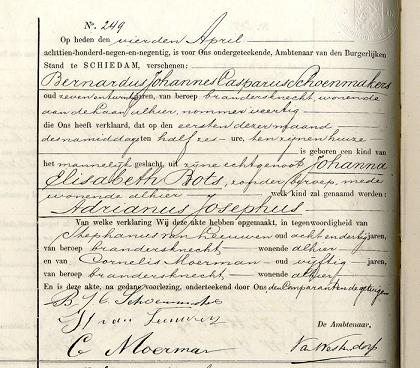 No. 249
Op heden den vierden April
achttien-honderd-negen-en-negentig, is voor Ons ondergeteekende, Ambtenaar van den Burgerlijken
Stand te SCHIEDAM, verschenen:
Bernardus Johannes Casparus Schoenmakers
oud zevenentwintig jaren, van beroep brandersknecht, wonende
aan de Laan alhier, nommer veertig
die Ons heeft verklaard, dat op den eersten dezer maand
des namiddags ten half zes ure, ten zijnen huize
is geboren een kind van
het mannelijk geslacht, uit zijne echtgenoot Johanna
Elisabeth Bots, zonder beroep, mede
wonende alhier welk kind zal genaamd worden:
Adrianus Josephus.
Van welke verklaring Wij deze akte hebben opgemaakt, in tegenwoordigheid van
Stephanus van Leeuwen oud achtendertig jaren,
van beroep brandersknecht wonende alhier
en van Cornelis Moerman oud vijftig jaren,
van beroep brandersknecht wonende alhier
En is deze akte, na gedane voorlezing, onderteekend door Ons, de Comparant en de getuigen
B J C Schoenmakers
St van Leeuwen
C Moerman
De Ambtenaar,